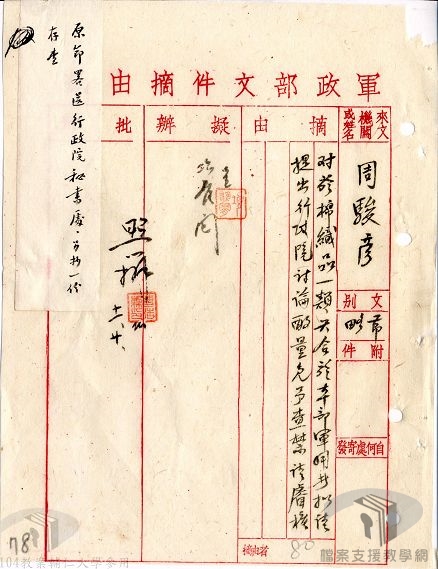 軍政部文件摘由
來文機關或姓名
周駿彥
文別
附件
自何處寄發
摘由
對於棉織品一類只合於本部軍用
提出行政院討論酌量免予查禁
擬辦
呈
批
照擬
十一、廿、
原節略送行政院秘書處。另抄一份
存查
80
78
檔案支援教學網
104教案輔仁大學參用